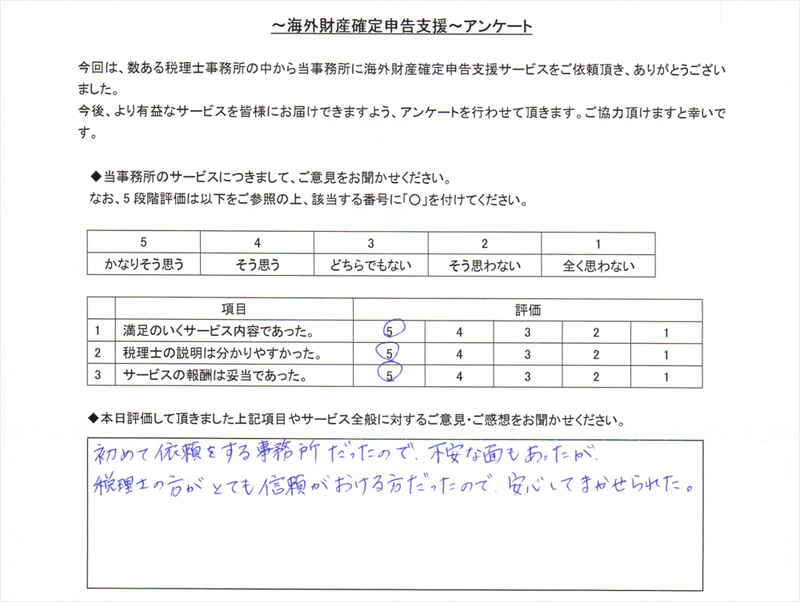 ～海外財産確定申告支援～アンケート
今回は、数ある税理士事務所の中から当事務所に海外財産確定申告支援サービスをご依頼頂き、ありがとうござい
ました。
今後、より有益なサービスを皆様にお届けできますよう、アンケートを行わせて頂きます。ご協力頂けますと幸いで
す。
◆当事務所のサービスにつきまして、ご意見をお聞かせください。
なお、5段階評価は以下をご参照の上、該当する番号に「○」を付けてください。
5 4 3 2 1
かなりそう思う そう思う どちらでもない そう思わない 全く思わない
項目 評価
1 満足のいくサービス内容であった。 5 4 3 2 1
2 税理士の説明は分かりやすかった。 5 4 3 2 1
3 サービスの報酬は妥当であった。 5 4 3 2 1
◆本日評価して頂きました上記項目やサービス全般に対するご意見・ご感想をお聞かせください。
初めて依頼をする事務所だったので、不安な面もあったが、
税理士の方がとても信頼がおける方だったので、安心してまかせられた。